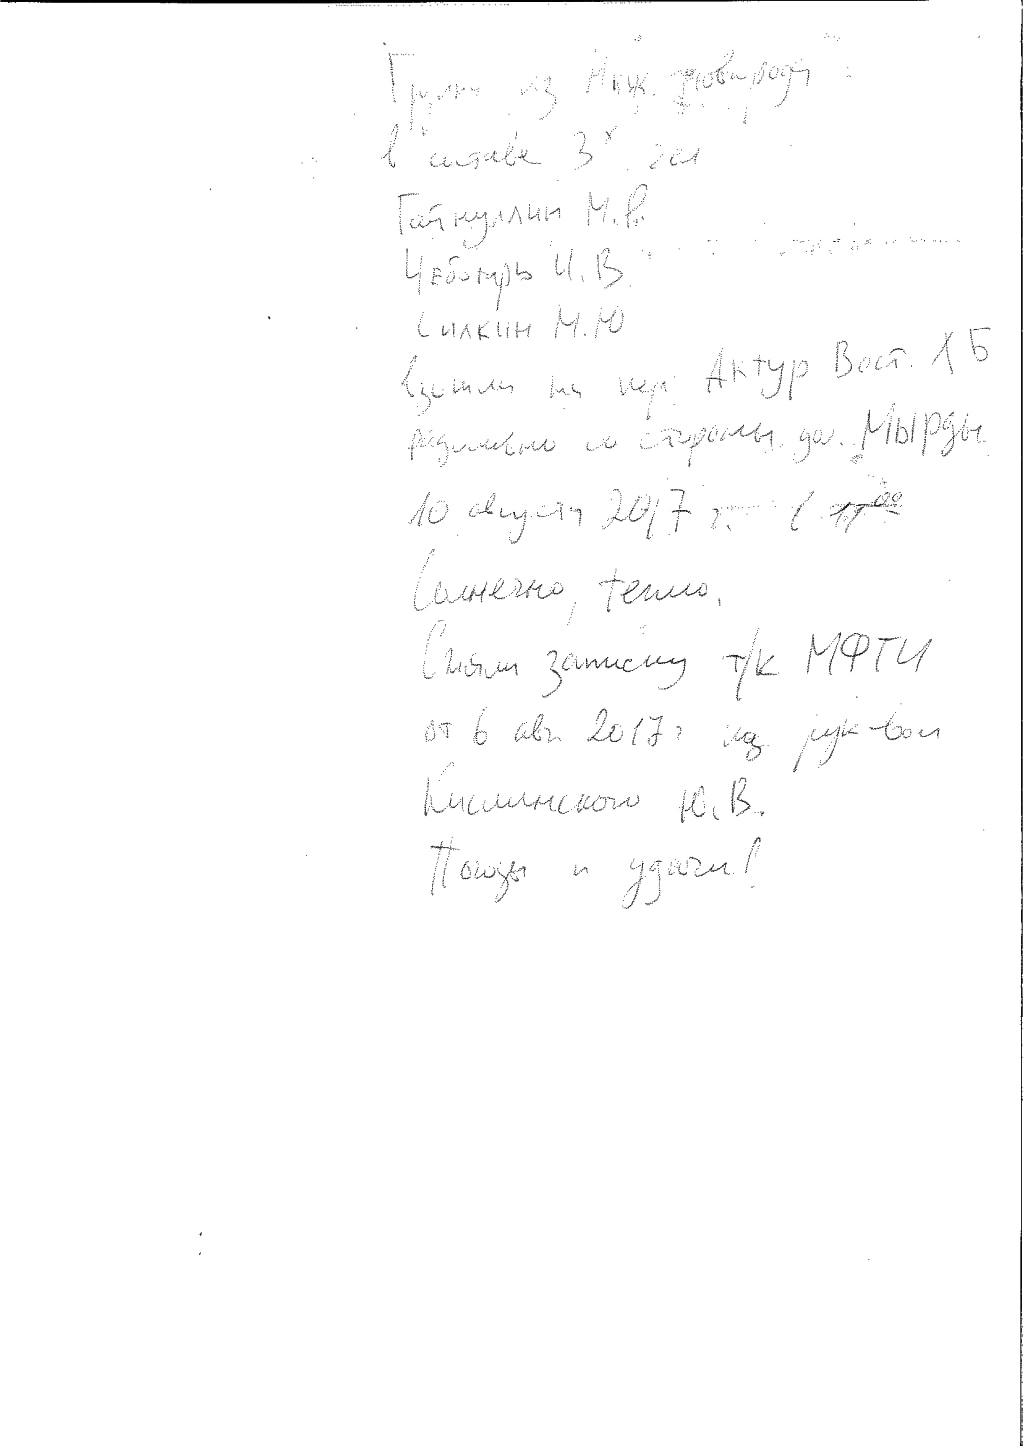 Группа из Ниж. Новгорода
в составе 3х чел
Гайнуллин М.В.
Чеботарь И.В.
Силкин М.Ю
взошли на пер. Актур Вост. 1Б
радиально со стороны дол. Мырды
10 августа 2017 г. в 11⁰⁰
Солнечно, тепло.
Сняли записку т/к МФТИ
от 6 авг. 2017 г под рук-вом
Кислинского Ю.В.
Погоды и удачи!